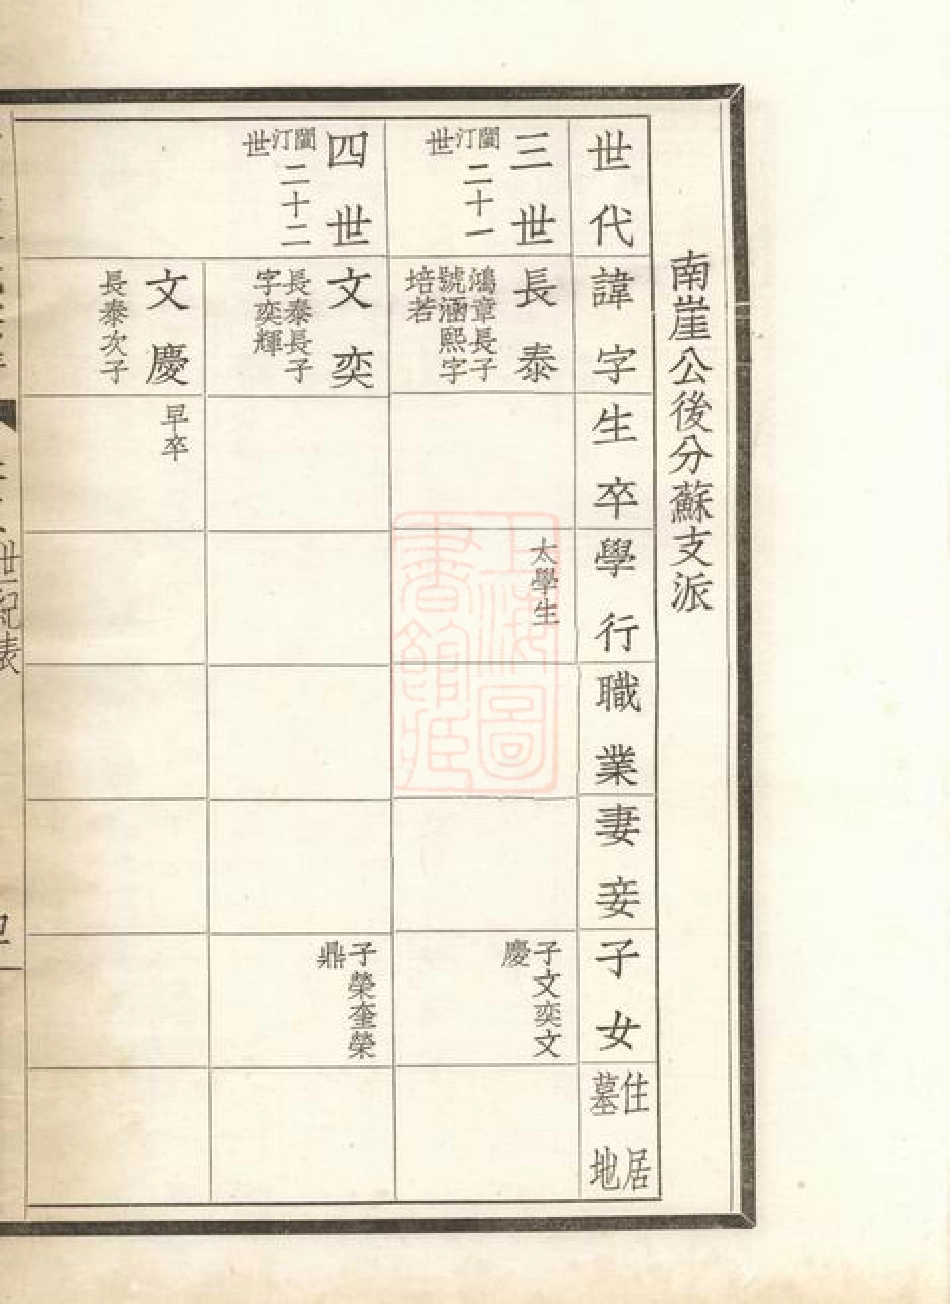 南崖公後分蘇支派
世代
諱字
生卒
學行
職業
妻妾
子女
住居
墓地
三世
閩汀二十一
世
長泰
鴻章長子
號涵熙字
培若
太學生
子文奕文
慶
四世
閩汀二十二
世
文奕
長泰長子
字奕輝
子榮奎榮
鼎
文慶
長泰次子
早卒
世紀表
上海圖
書館藏